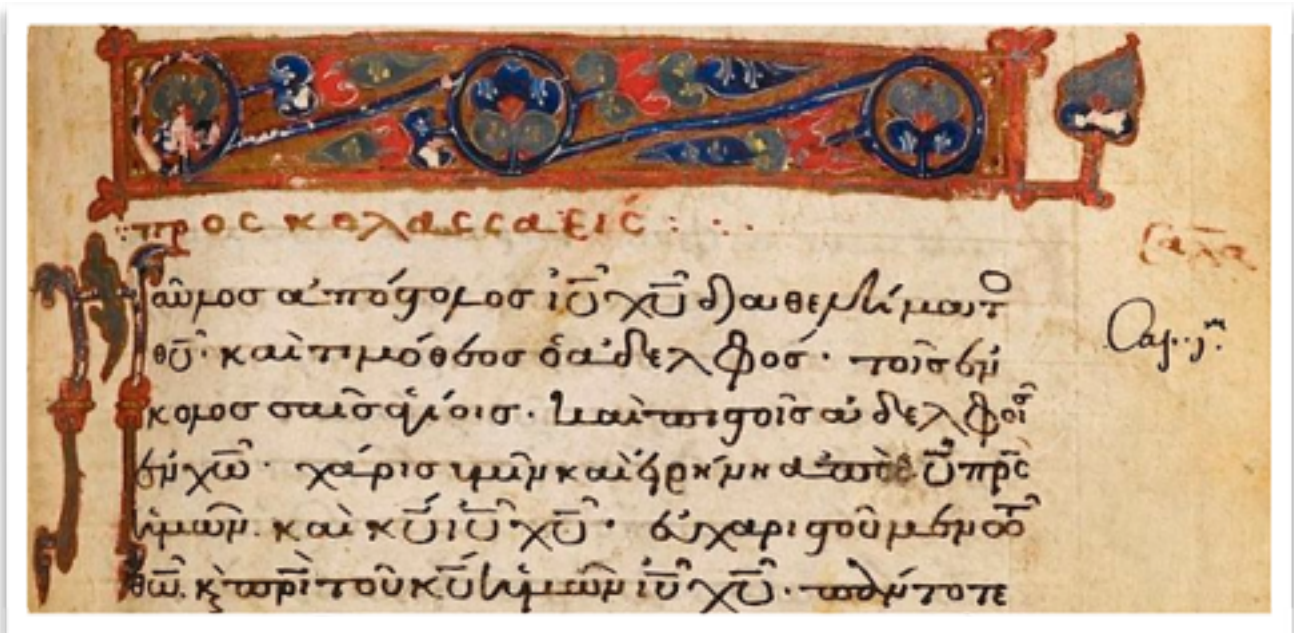 προς κολασσαεις
Παῦλος ἀπόστολος ἰῦ χῦ διὰ θελήματο
θῦ· καὶ τιμόθεος ὁ ἀδελφός· τοῖς ἐν
κολοσσαῖς ἁγίοις· καὶ πιστοῖς ἀδελφοῖς
ἐν χῶ· χάρις ὑμῖν καὶ εἰρήνη ἀπὸ θῦ πρς
ἡμῶν· καὶ κῦ ἰῦ χῦ· εὐχαριστοῦμεν τῶ
θῶ. κ πρὶ τοῦ κῦ ἡμῶν ἰῦ χῦ· πάντοτε